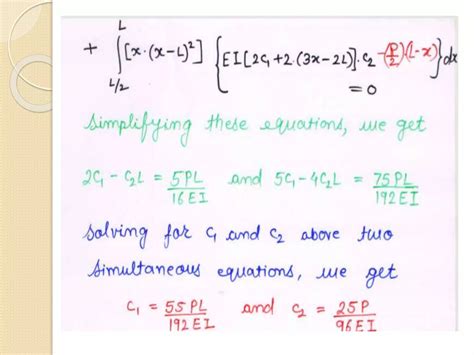 + ∫_{L/2}^{L} [x·(x-L)²] {EI[2C₁+2·(3x-2L)]·C₂ -(P/2)(L-x)}dx
=0
Simplifying these equations, we get
2C₁ - C₂L = 5PL/16EI and 5C₁-4C₂L = 75PL/192EI
Solving for C₁ and C₂ above two
simultaneous equations, we get
C₁ = 55PL/192EI and C₂ = 25P/96EI